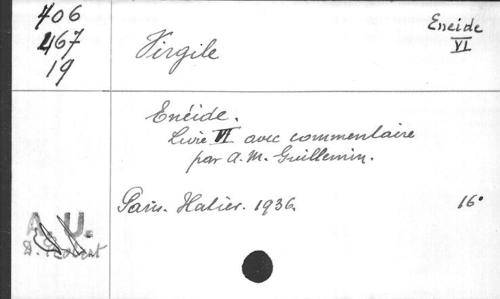 406
467
19
Virgile
Enéide
VI
Enéide.
Livre VI avec commentaire
par A. M. Guillemin.
Paris. Hatier. 1936. 16°
A. U.
D.